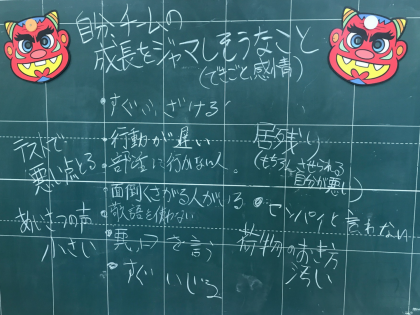 自分、チームの
成長をジャマしそうなこと
(できごと、感情)
・すぐふざける
・行動が遅い
・部室に行かない人。
・面倒くさがる人がいる
・敬語を使わない
・悪口を言う
・すぐいじる
テストで
悪い点とる
あいさつの声
小さい
居残り
(もちろんさせられる
自分が悪い)
・センパイと言わない
荷物のおき方
汚い